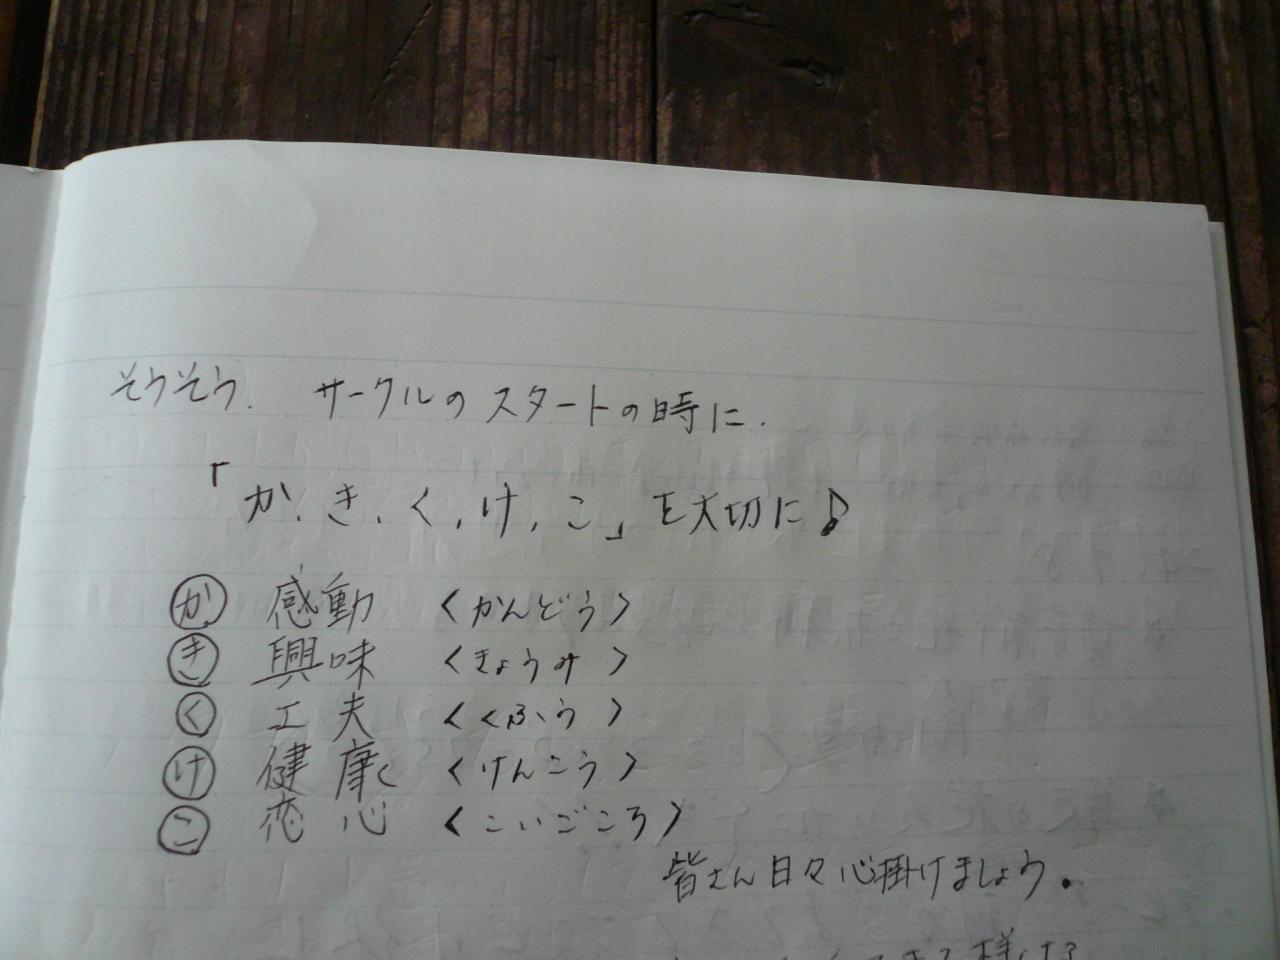 そうそう. サークルのスタートの時に.
「か、き、く、け、こ」を大切に♪
か 感動 〈かんどう〉
き 興味 〈きょうみ〉
く 工夫 〈くふう〉
け 健康 〈けんこう〉
こ 恋心 〈こいごころ〉
皆さん日々心掛けましょう。